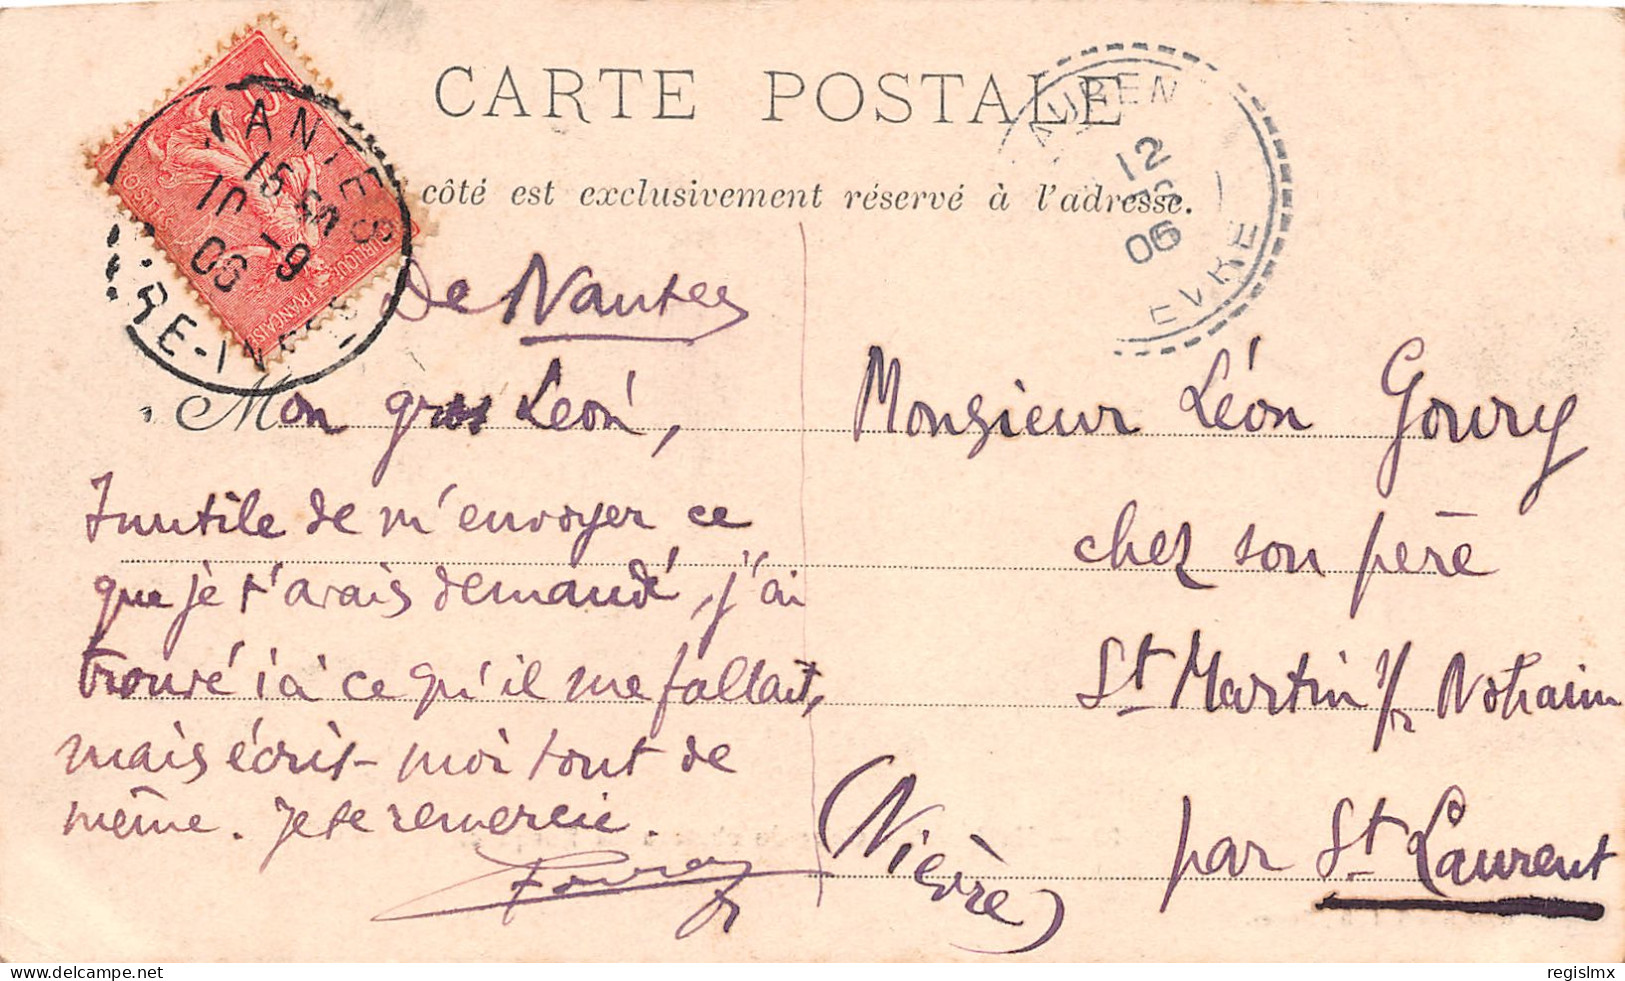 CARTE POSTALE
côté est exclusivement réservé à l'adresse.
POSTES
RÉPUBLIQUE FRANÇAISE
NANTES
15
10 -9
06
RE-INF
LAUREN
12
06
EVRE
De Nantes
Mon gros Léon,
Inutile de m'envoyer ce
que je t'avais demandé, j'ai
trouvé ici ce qu'il me fallait,
mais écris-moi tout de
même. Je te remercie.
Monsieur Léon Goury
chez son père
St Martin s/ Nohain
par St Laurent
(Nièvre)
regislmx